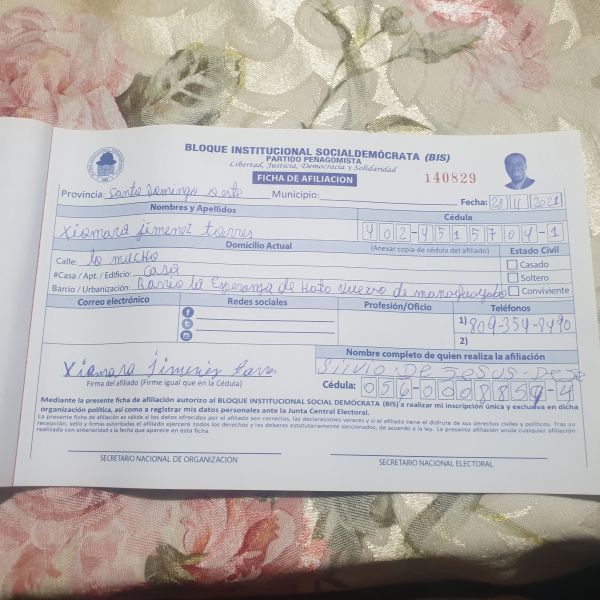 BLOQUE INSTITUCIONAL SOCIALDEMÓCRATA (BIS)
PARTIDO PEÑAGOMISTA
Libertad, Justicia, Democracia y Solidaridad
FICHA DE AFILIACION
140829
Provincia: Santo Domingo Oeste Municipio: Fecha:
Nombres y Apellidos Cédula
Xiomara Jimenez Torres 402-4515704-1
Domicilio Actual (Anexar copia de cédula del afiliado) Estado Civil
Calle: Casado
#Casa / Apt. / Edificio: Casa Soltero
Barrio / Urbanización: Barrio la Esperanza de Hato Nuevo de manoguayabo Conviviente
Correo electrónico Redes sociales Profesión/Oficio Teléfonos
1) 809-354-8490
2)
Nombre completo de quien realiza la afiliación
Xiomara Jimenez SILVIO DE JESUS
Firma del afiliado (Firme igual que en la Cédula) Cédula:
Mediante la presente ficha de afiliación autorizo al BLOQUE INSTITUCIONAL SOCIAL DEMÓCRATA (BIS) a realizar mi inscripción única y exclusiva en dicha
organización política, así como a registrar mis datos personales ante la Junta Central Electoral.
La presente ficha de afiliación es válida si los datos ofrecidos por el afiliado son correctos, las declaraciones veraces y si el afiliado tiene el disfrute de sus derechos civiles y políticos. Tras su
recepción, sello y firmas autorizadas el afiliado ejercerá todos los derechos y los deberes estatutariamente sancionados, de acuerdo a la ley. La presente afiliación anula cualquier afiliación
realizada con anterioridad a la fecha que aparece en esta ficha.
SECRETARIO NACIONAL DE ORGANIZACIÓN SECRETARIO NACIONAL ELECTORAL